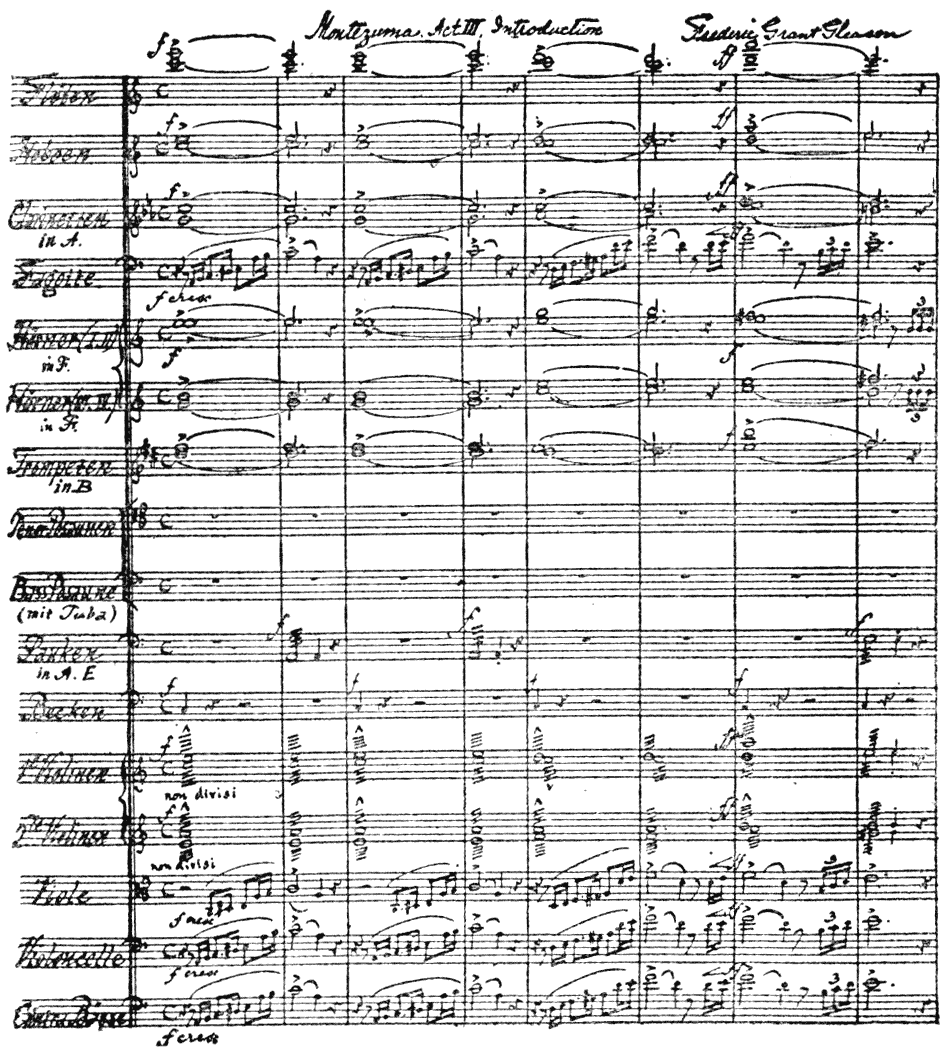 Montezuma. Act III. Introduction Frederic Grant Gleason
f ff
Flöten
f ff
Hoboen
f ff
Clarinetten
in A.
Fagotte
f cresc
Hörner (I. II)
in F.
f f
Hörner (III. IV)
in F.
f
Trompeten
in B
Tenor Posaunen
Bass Posaune
(mit Tuba)
f f f
Pauken
in A. E
f f f
Becken
f ff
1te Violinen
non divisi
f ff
2te Violinen
non divisi
ff
Viole
f cresc
ff
3
Violoncelle
f cresc
ff
3
Contra Bässe
f cresc